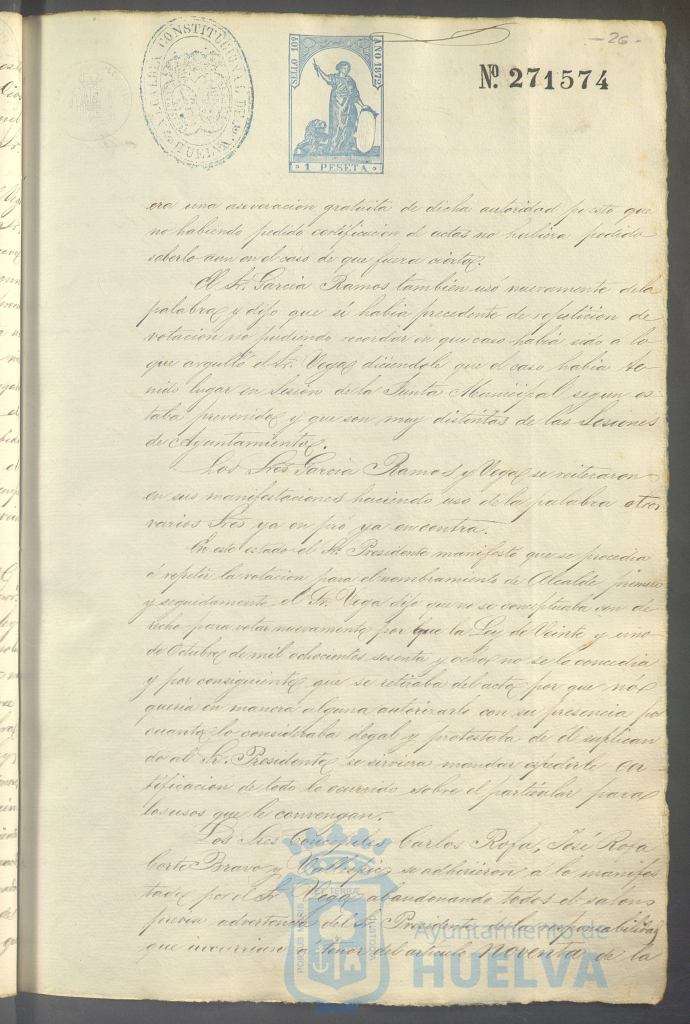 - 26 -
ALCALDIA CONSTITUCIONAL DE HUELVA
SELLO 10º
AÑO 1872
1 PESETA
Nº 271574
era una aseveracion gratuita de dicha autoridad puesto que
no habiendo pedido certificacion de actas no hubiera podido
saberlo aun en el caso de que fuera cierta.
El Sr. Garcia Ramos tambien usó nuevamente de la
palabra y dijo que si habia precedente de repeticion de
votacion no pudiendo recordar en que caso habia sido a lo
que arguyó el Sr. Vega diciendole que el caso habia te-
nido lugar en sesion de la Junta Municipal segun es
taba prevenido y que son muy distintas de las Sesiones
de Ayuntamiento.
Los Sres Garcia Ramos y Vega se reiteraron
en sus manifestaciones haciendo uso de la palabra otros
varios Sres ya en pró ya en contra.
En este estado el Sr. Presidente manifestó que se procedia
á repetir la votacion para el nombramiento de Alcalde primero
y seguidamente el Sr. Vega dijo que no se conceptuaba con de
recho para votar nuevamente por que la Ley de Veinte y uno
de Octubre de mil ochocientos sesenta y ocho no se lo concedia
y por consiguiente que se retiraba del acto por que no
queria en manera alguna autorizarlo con su presencia por
cuanto lo consideraba ilegal y protestaba de el suplican
do al Sr. Presidente se sirviera mandar expedirle cer
tificacion de todo lo ocurrido sobre el particular para
los usos que le convengan.
Los Sres Concejales Carlos Rofa, José Rofa
Certo Bravo y Vallejo se adhirieron á lo manifes
tado por el Sr Vega abandonando todos el salon
previa advertencia del Sr. Presidente de la responsabilidad
que incurrian a tenor del articulo noventa de la
PORTUS MARIS ET TERRAE CUSTODIA
Ayuntamiento de
HUELVA